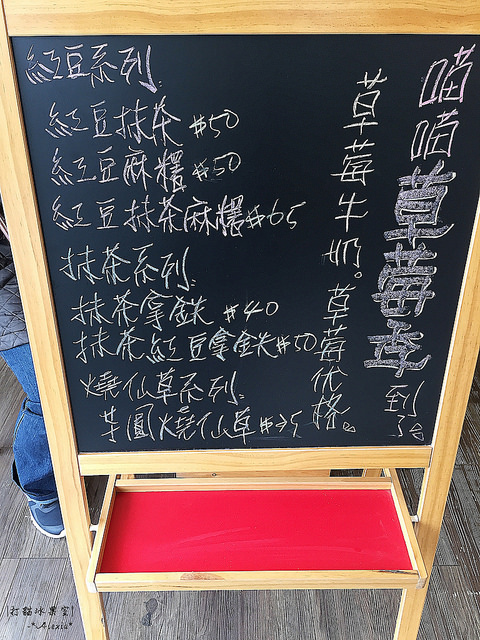 喵喵草莓季到了。
草莓牛奶。草莓优格。
紅豆系列.
紅豆抹茶 #50
紅豆麻糬 #50
紅豆抹茶麻糬 #65
抹茶系列.
抹茶拿鉄 #40
抹茶紅豆拿鉄 #50
燒仙草系列.
芋圓燒仙草 #35
打貓冰果室
*Alexia*